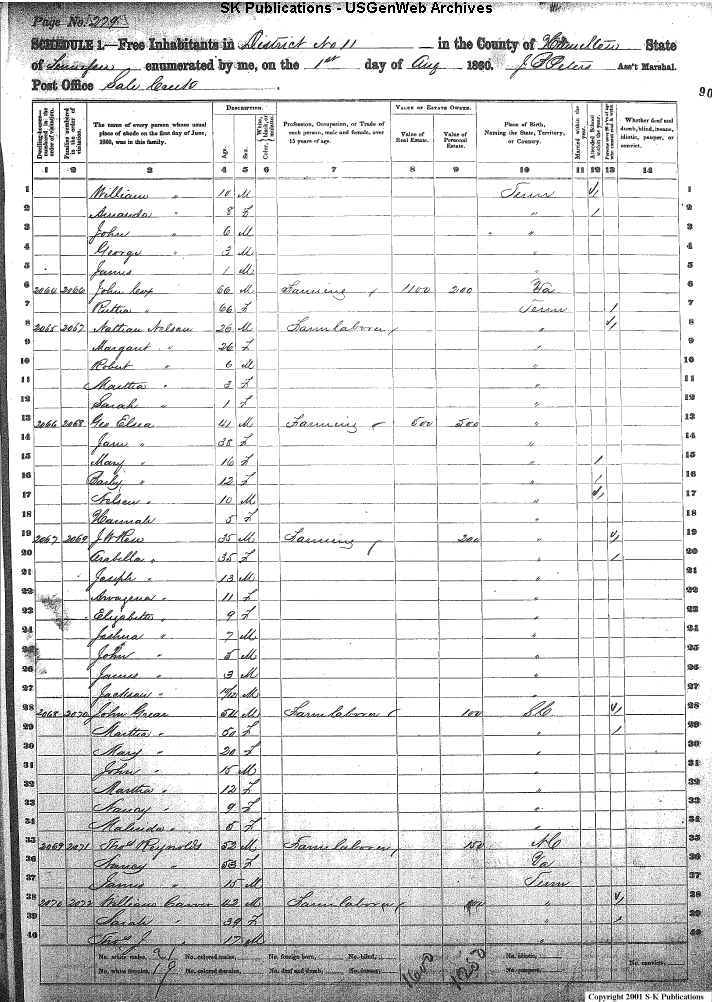 SK Publications - USGenWeb Archives
Page No. 229
SCHEDULE 1.—Free Inhabitants in District No 11 in the County of Hamilton State
of Tennessee enumerated by me, on the 1st day of Aug 1860. J. Peters Ass't Marshal.
Post Office Sale Creek
90
Dwelling-houses—numbered in the order of visitation.
Families numbered in the order of visitation.
The name of every person whose usual place of abode on the first day of June, 1860, was in this family.
DESCRIPTION.
Age.
Sex.
Color, White, black, or mulatto.
Profession, Occupation, or Trade of each person, male and female, over 15 years of age.
VALUE OF ESTATE OWNED.
Value of Real Estate.
Value of Personal Estate.
Place of Birth, Naming the State, Territory, or Country.
Married within the year.
Attended School within the year.
Whether deaf and dumb, blind, insane, idiotic, pauper, or convict.
1 2 3 4 5 6 7 8 9 10 11 12 13 14
1 William " 10 M Tenn 1 1
2 Amanda " 8 F " 1 2
3 John " 6 M " 3
4 George " 3 M " 4
5 James " 1 M " 5
6 2064 2066 John Cox 66 M Farming 1100 200 Va 6
7 Rutha " 66 F Tenn 1 7
8 2065 2067 Nathan Nelson 26 M Farm laborer " 1 8
9 Margaret " 26 F " 9
10 Robert " 6 M " 10
11 Martha " 3 F " 11
12 Sarah " 1 F " 12
13 2066 2068 Geo Elsea 41 M Farming 500 500 " 13
14 Jane " 38 F " 14
15 Mary " 16 F " 1 15
16 " 12 F " 1 16
17 Nelson " 10 M " 1 17
18 Hannah " 5 F " 18
19 2067 2069 J W 35 M Farming 200 " 1 19
20 Arabella " 35 F " 1 20
21 Joseph " 13 M " 21
22 " 11 F " 22
23 Elizabeth " 9 F " 23
24 Joshua " 7 M " 24
25 John " 5 M " 25
26 James " 3 M " 26
27 Jackson " /12 M " 27
28 2068 2070 John Grear 54 M Farm laborer 100 SC 1 28
29 Martha " 50 F " 1 29
30 Mary " 20 F " 30
31 John " 15 M " 31
32 Martha " 12 F " 32
33 Nancy " 9 F " 33
34 Malinda " 5 F " 34
35 2069 2071 Thos Reynolds 52 M Farm laborer 150 NC 35
36 Nancy " 53 F Va 36
37 James " 15 M Tenn 37
38 2070 2072 William Carver 42 M Farm laborer 100 " 1 38
39 Sarah 39 F " 1 39
40 Thos J " 17 M " 40
No. white males, 21 No. colored males, No. foreign born, No. blind, 1600 1250 No. idiotic,
No. white females, 19 No. colored females, No. deaf and dumb, No. insane, No. paupers, No. convicts,
Copyright 2001 S-K Publications